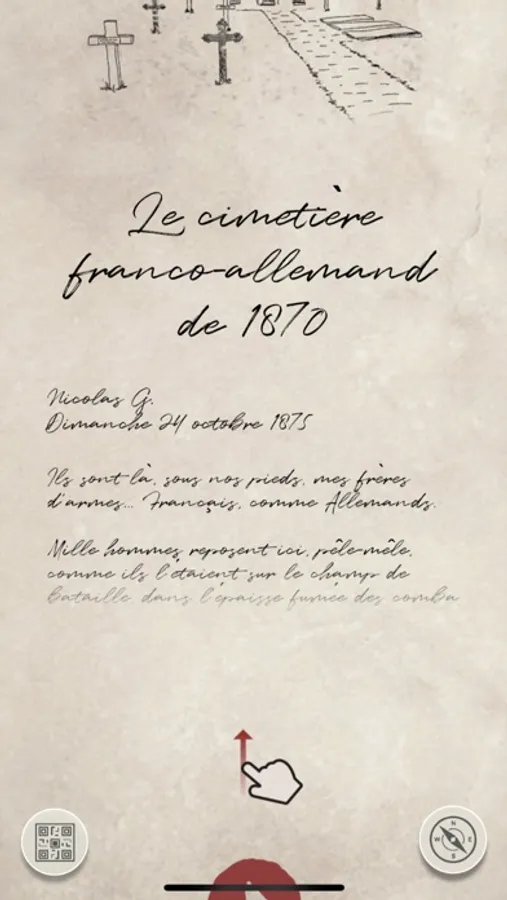 Le cimetière
franco-allemand
de 1870
Nicolas G.
Dimanche 24 octobre 1875
Ils sont là, sous nos pieds, mes frères
d'armes... Français, comme Allemands.
Mille hommes reposent ici, pêle-mêle,
comme ils l'étaient sur le champ de
bataille dans l'épaisse fumée des comba
N
W E
S